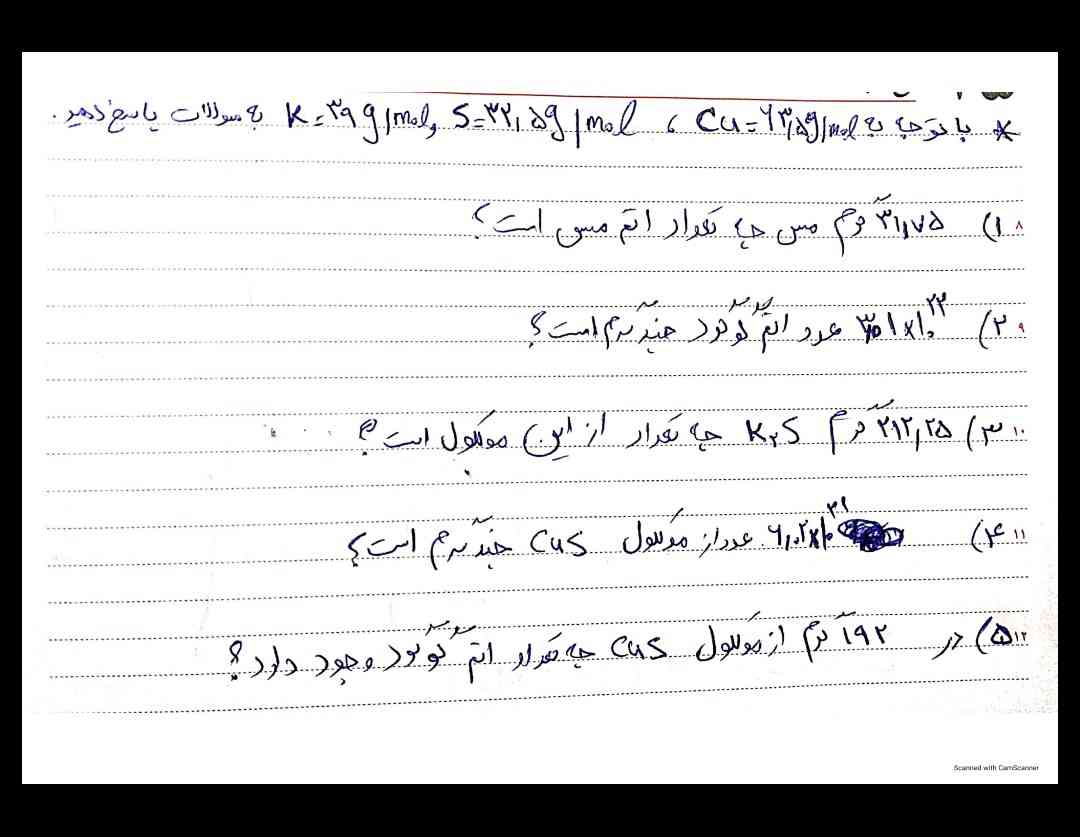 * با توجه به Cu=۶۳٫۵g/mol ، S=۳۲٫۵g/mol و K=۳۹g/mol به سوالات پاسخ دهید.
۸ ۱) ۳۱٫۷۵ گرم مس چه تعداد اتم مس است؟
۹ ۲) ۳٫۰۱×۱۰^۲۳ عدد اتم گوگرد چند گرم است؟
۱۰ ۳) ۲۱۲٫۲۵ گرم K۲S چه تعداد از این مولکول است؟
۱۱ ۴) ۶٫۰۲×۱۰^۲۱ عدد از مولکول CuS چند گرم است؟
۱۲ ۵) در ۱۹۲ گرم از مولکول CuS چه تعداد اتم گوگرد وجود دارد؟
Scanned with CamScanner